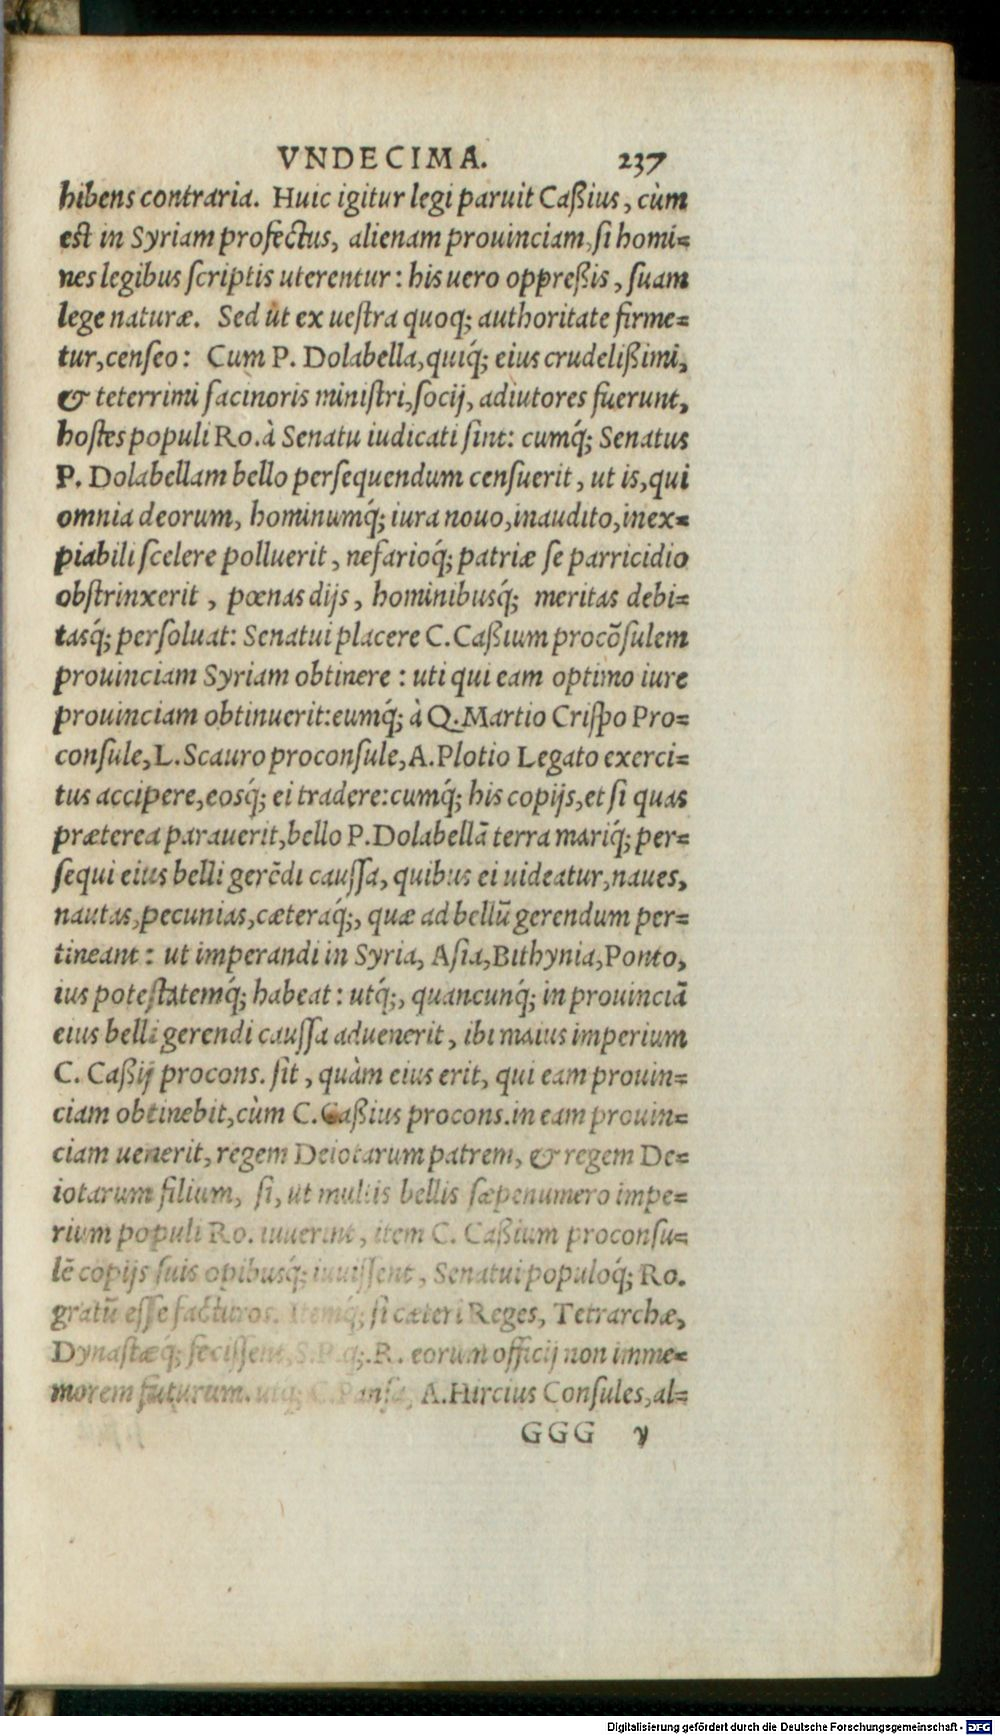 VNDECIMA. 237
hibens contraria. Huic igitur legi paruit Caßius, cùm
est in Syriam profectus, alienam prouinciam, si homi=
nes legibus scriptis uterentur: his uero oppreßis, suam
lege naturæ. Sed ut ex uestra quoq; authoritate firme=
tur, censeo: Cum P. Dolabella, quiq́; eius crudelißimi,
& teterrimi facinoris ministri, socij, adiutores fuerunt,
hostes populi Ro. à Senatu iudicati sint: cumq́; Senatus
P. Dolabellam bello persequendum censuerit, ut is, qui
omnia deorum, hominumq́; iura nouo, inaudito, inex=
piabili scelere polluerit, nefarioq́; patriæ se parricidio
obstrinxerit, pœnas dijs, hominibusq́; meritas debi=
tasq́; persoluat: Senatui placere C. Caßium procõsulem
prouinciam Syriam obtinere: uti qui eam optimo iure
prouinciam obtinuerit: eumq́; à Q. Martio Crispo Pro=
consule, L. Scauro proconsule, A. Plotio Legato exerci=
tus accipere, eosq́; ei tradere: cumq́; his copijs, et si quas
præterea parauerit, bello P. Dolabellã terra mariq́; per=
sequi eius belli gerẽdi caussa, quibus ei uideatur, naues,
nautas, pecunias, cæteraq́;, quæ ad bellũ gerendum per=
tineant: ut imperandi in Syria, Asia, Bithynia, Ponto,
ius potestatemq́; habeat: utq́;, quancunq́; in prouinciã
eius belli gerendi caussa aduenerit, ibi maius imperium
C. Caßij procons. sit, quàm eius erit, qui eam prouin=
ciam obtinebit, cùm C. Caßius procons. in eam prouin=
ciam uenerit, regem Deiotarum patrem, & regem De=
iotarum filium, si, ut multis bellis sæpenumero impe=
rium populi Ro. iuuerint, item C. Caßium proconsu=
lẽ copijs suis opibusq́; iuuissent, Senatui populoq́; Ro.
gratũ esse facturos. Itemq́; si cæteri Reges, Tetrarchæ,
Dynastæq́; fecissent, S.P.q;.R. eorum officij non imme=
morem futurum. utq; C. Pansa, A. Hircius Consules, al=
GGG v
Digitalisierung gefördert durch die Deutsche Forschungsgemeinschaft - DFG